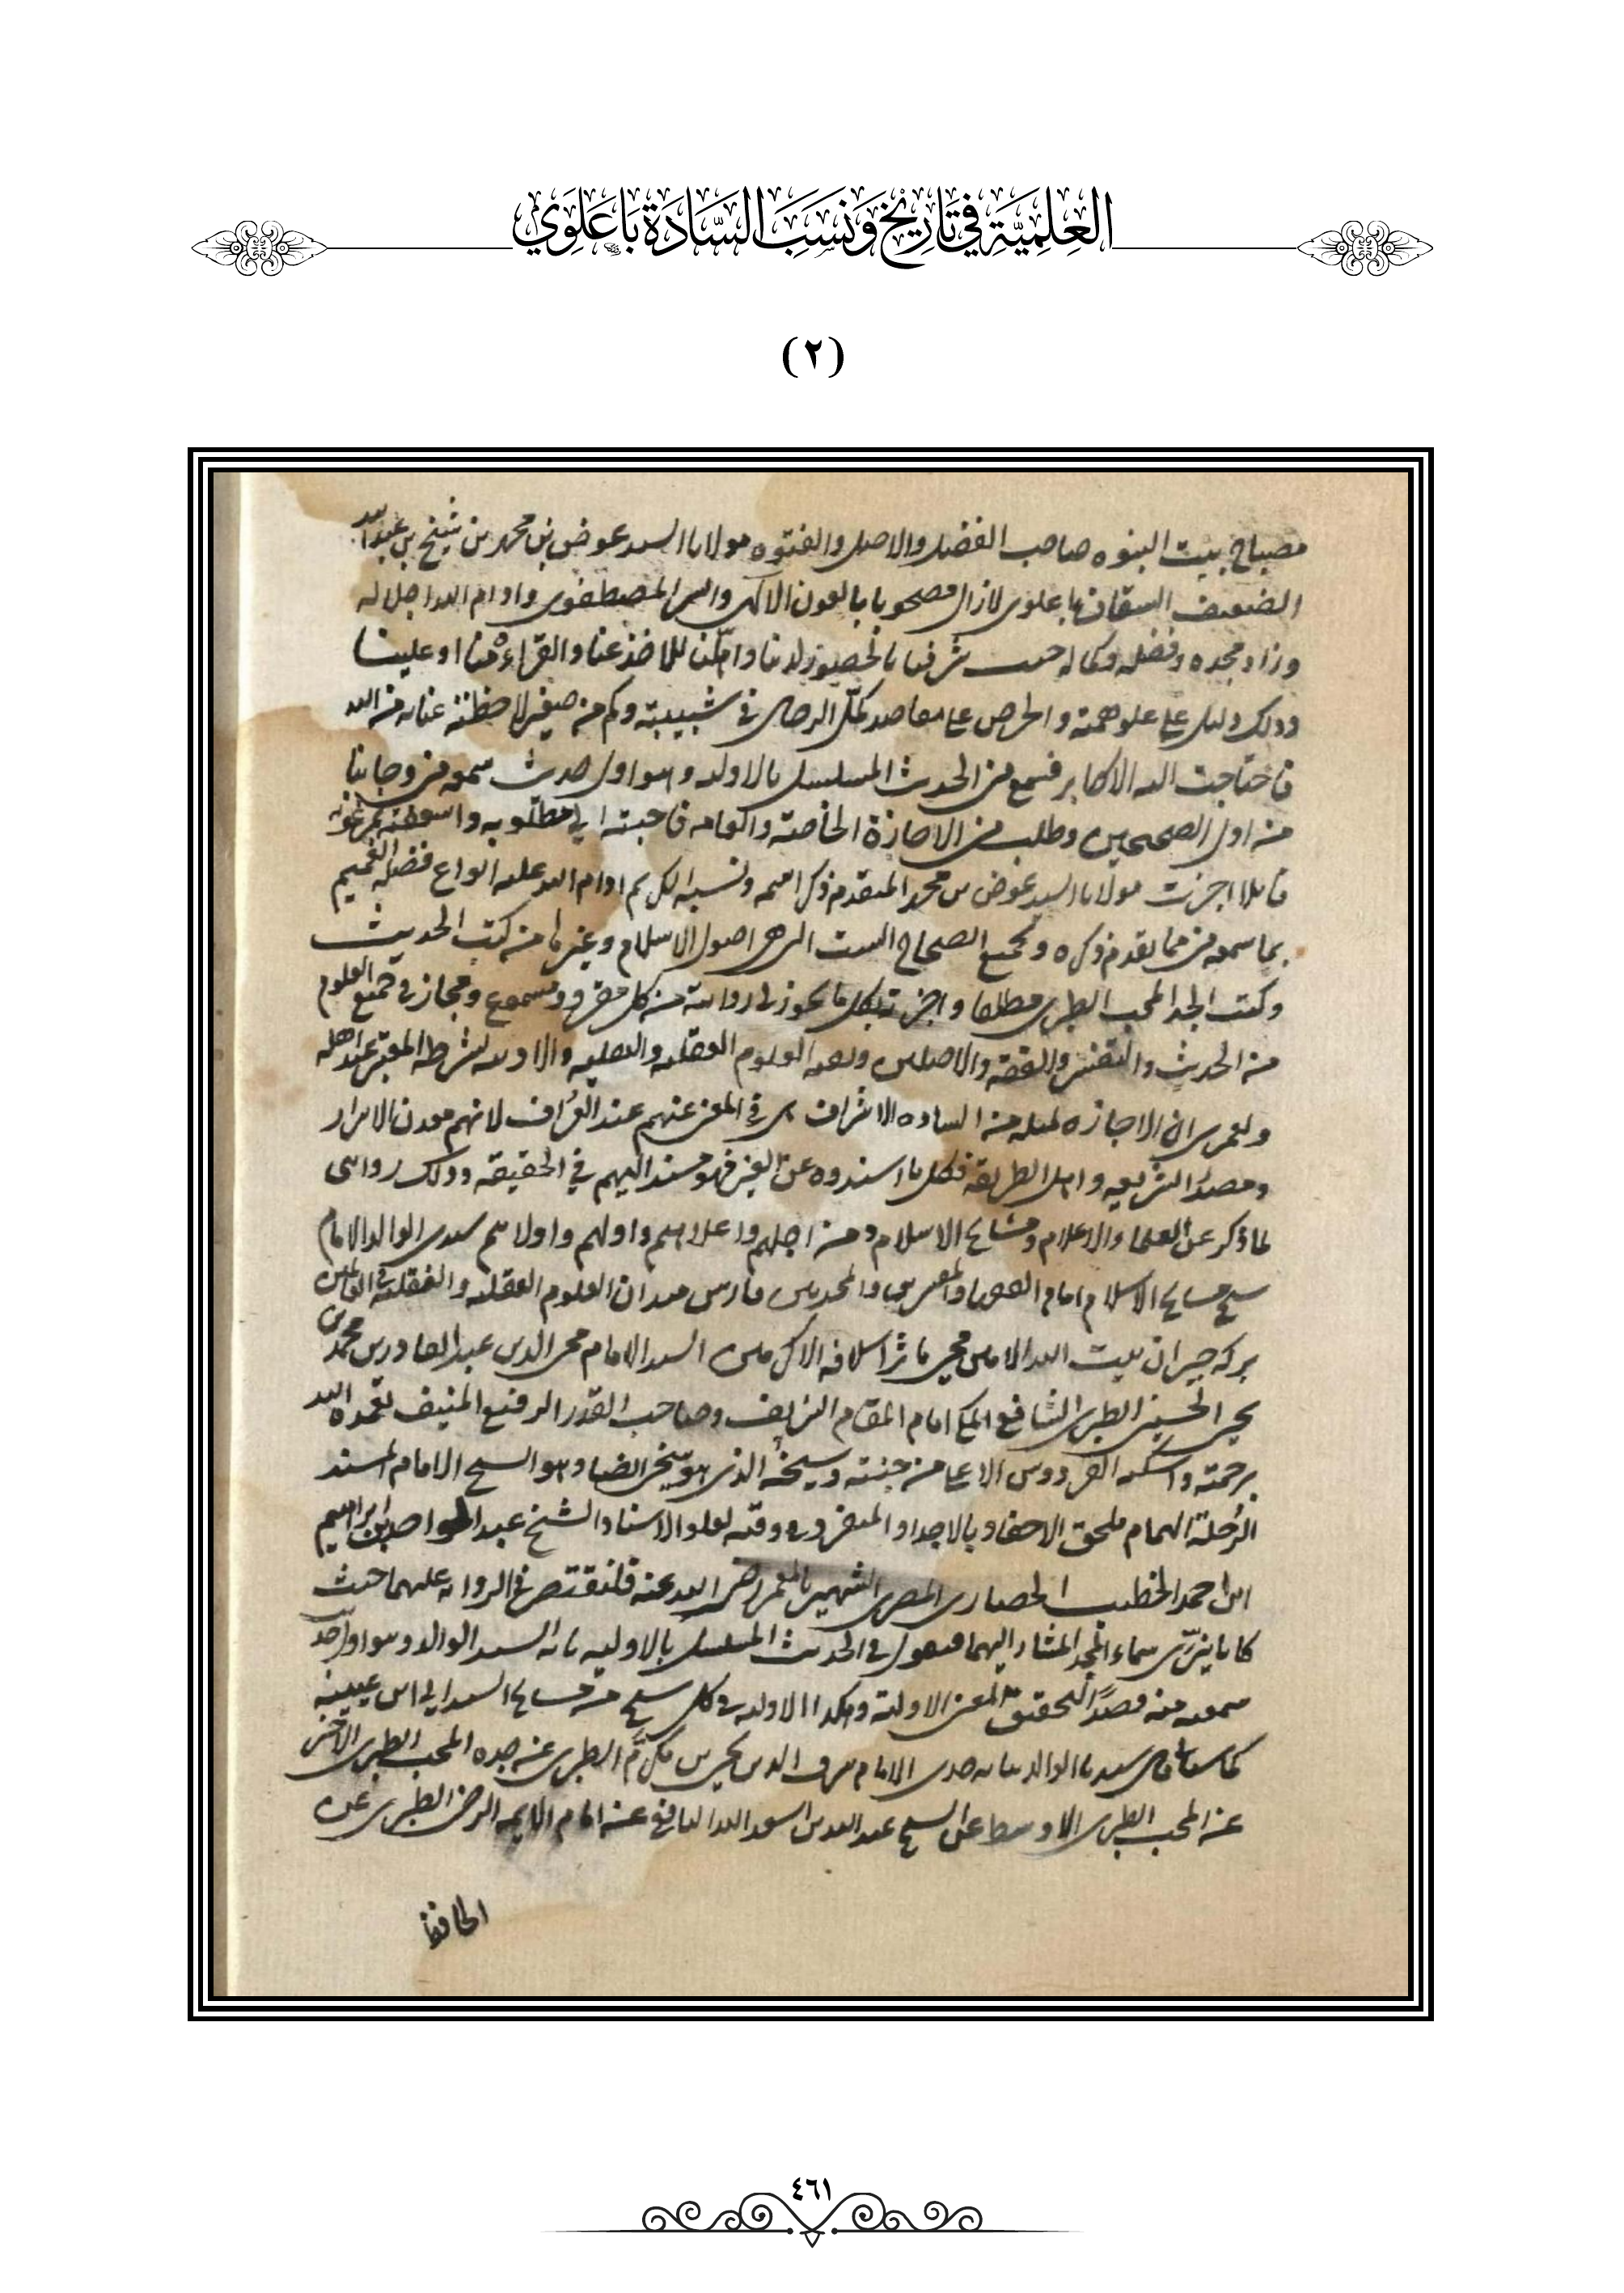 العِلْمِيَّة في تَارِيْخِ وَنَسَبِ السَّادَةِ بَاعَلَوِي
(٢)
مصباح بيت النبوه صاحب الفضل والاصل والفتوه مولانا السيد عوض بن محمد بن شيخ بن عبد الله
الضعيف السقاف باعلوى لازال مصحوبا بالعون الالهى والسر المصطفوى وادام الله اجلاله
وزاد مجده وفضله وكماله حيث شرفنا بالحضور لدينا للاخذ عنا والقراءة هنا او علينا
وذلك دليل على علو همته والحرص على مقاصد كمّل الرجال فى شبيبته وكم من صغير لاحظته عنايه من الله
فاحتاجت اليه الاكابر فسمع منى الحديث المسلسل بالاوليه وهو اول حديث سمعه منى وجانبا
من اول الصحيحين وطلب منى الاجازة الخاصة والعامه فاجبته الى مطلوبه واسعفته بمرغوبه
قايلا اجزت مولانا السيد عوض بن محمد المتقدم ذكر اسمه ونسبه الكريم ادام الله عليه انواع فضله العميم
بما سمعه منى مما تقدم ذكره وبجميع الصحاح الست التى هى اصول الاسلام وغيرها من كتب الحديث
وكتب الجد المحب الطبرى مطلقا واجزته بكل ما يجوز لى روايته من كل مقروء ومسموع ومجاز فى جميع العلوم
من الحديث والتفسير والفقه والاصلين وبقيه العلوم العقليه والنقليه بشرطه المعتبر عند اهله
ولعمرى ان الاجازه لمثله من الساده الاشراف هى فى المعنى عنهم عند العرّاف لانهم معدن الاسرار
ومصدر الشريعه واهل الطريقه فكل ما اسندوه عن الغير فهو مسند اليهم فى الحقيقه وذلك روايتى
لما ذكر عن العلماء الاعلام ومشايخ الاسلام ومن اجلهم واعلاهم واولهم واولاهم سيدى الوالد الامام
شيخ مشايخ الاسلام امام الفقهاء والمفسرين والمحدثين فارس ميدان العلوم العقليه والنقليه
بركة جيران بيت الله الامين محيى مآثر اسلافه الاكرمين السيد الامام محى الدين عبد القادر بن محمد بن
يحيى الحسينى الطبرى الشافعى المكى امام المقام الشريف وصاحب القدر الرفيع المنيف تغمده الله
برحمته واسكنه الفردوس الاعلى من جنته وشيخه الذى هو شيخى ايضا وهو الشيخ الامام المسند
الرحلة الهمام ملحق الاحفاد بالاجداد المنفرد فى وقته بعلو الاسناد الشيخ عبد الواحد بن ابراهيم
ابن احمد الخطيب الحصارى المصرى الشهير بالمعمر رضى الله عنه فلنقتصر فى الروايه عليهما حيث
كانا نيّرى سماء المجد المشار اليهما فنقول فى الحديث المسلسل بالاوليه نا به السيد الوالد وهو اول حديث
سمعته منه قصدًا لتحقق معنى الاوليه وهكذا الاوليه فى كل شيخ من مشايخ السند الى ابن عيينه
سيدنا الوالد جدى الامام شرف الدين يحيى بن مكرّم الطبرى عن جده المحب الطبرى الاخير
عن المحب الطبرى الاوسط عن الشيخ عبد الله بن اسعد اليافعى عن امام الايمه الرضى الطبرى عن
الحافظ
٤٦١